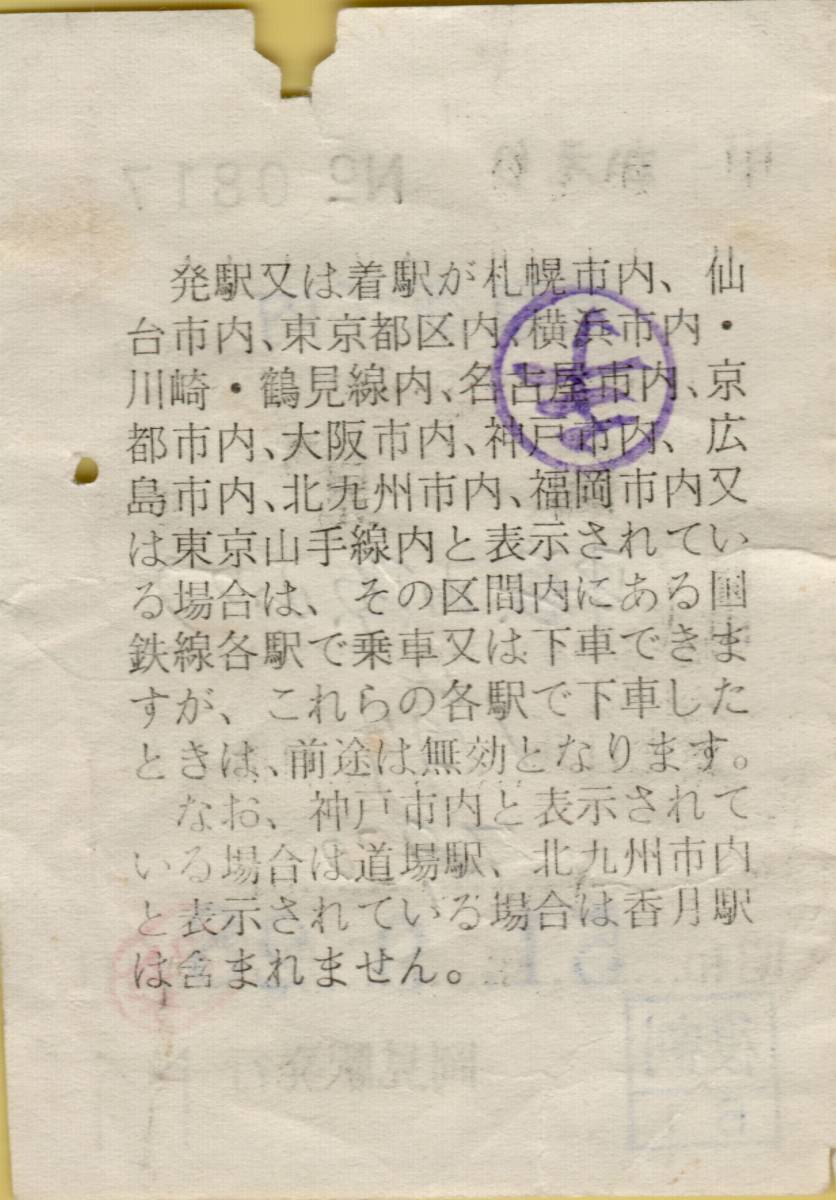 発駅又は着駅が札幌市内、仙
台市内、東京都区内、横浜市内・
川崎・鶴見線内、名古屋市内、京
都市内、大阪市内、神戸市内、広
島市内、北九州市内、福岡市内又
は東京山手線内と表示されてい
る場合は、その区間内にある国
鉄線各駅で乗車又は下車できま
すが、これらの各駅で下車した
ときは、前途は無効となります。
なお、神戸市内と表示されて
いる場合は道場駅、北九州市内
と表示されている場合は香月駅
は含まれません。